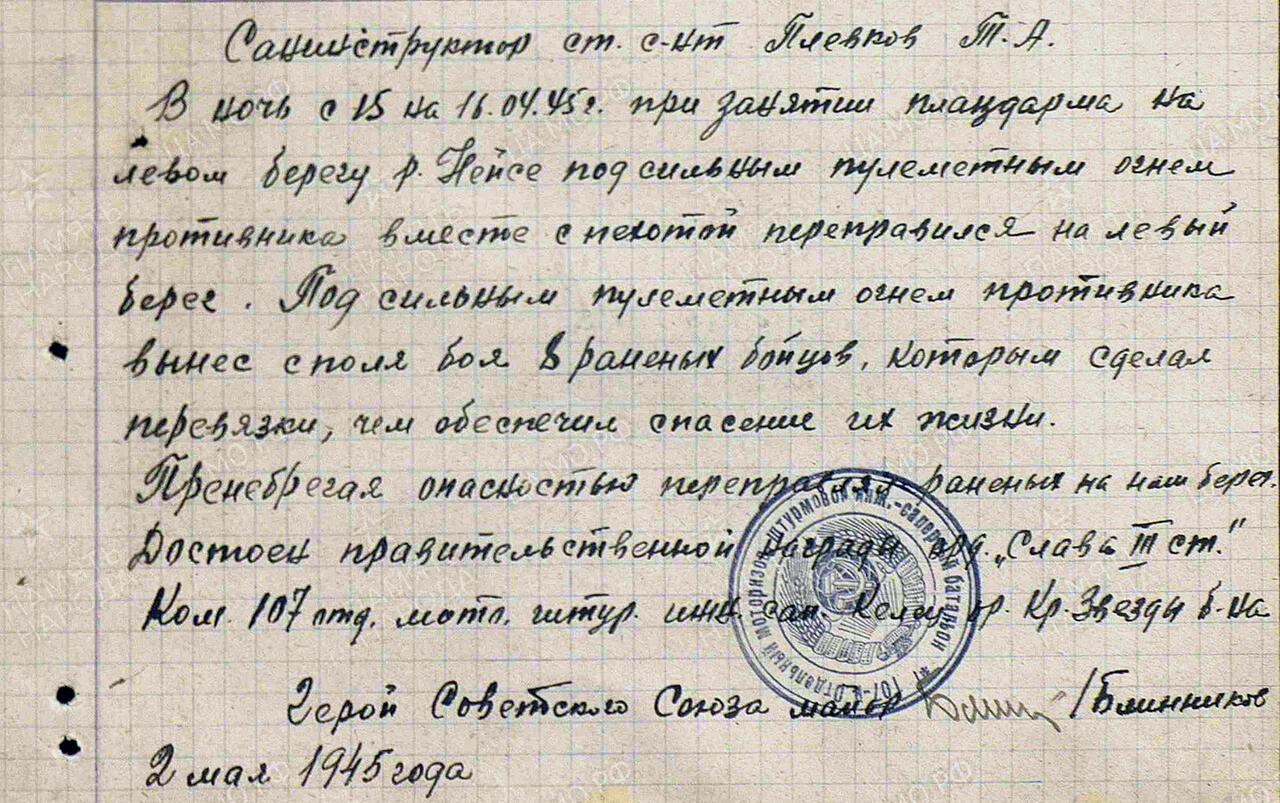 Санинструктор ст. с-нт Плевков Т.А.
В ночь с 15 на 16.04.45 г. при занятии плацдарма на
левом берегу р. Нейсе под сильным пулеметным огнем
противника вместе с пехотой переправился на левый
берег. Под сильным пулеметным огнем противника
вынес с поля боя 8 раненых бойцов, которым сделал
перевязки, чем обеспечил спасение их жизни.
Пренебрегая опасностью переправлял раненых на наш берег.
Достоен правительственной награды орд. „Слава III ст."
Ком. 107 отд. мото. штур. инж. сап. Келец. ор. Кр. Звезды б-на
Герой Советского Союза майор /Блинников
2 мая 1945 года
107-й Отдельный моторизов. штурмовой инж.-саперный батальон
ПАМЯТЬ НАРОДА
ЦАМО.РФ